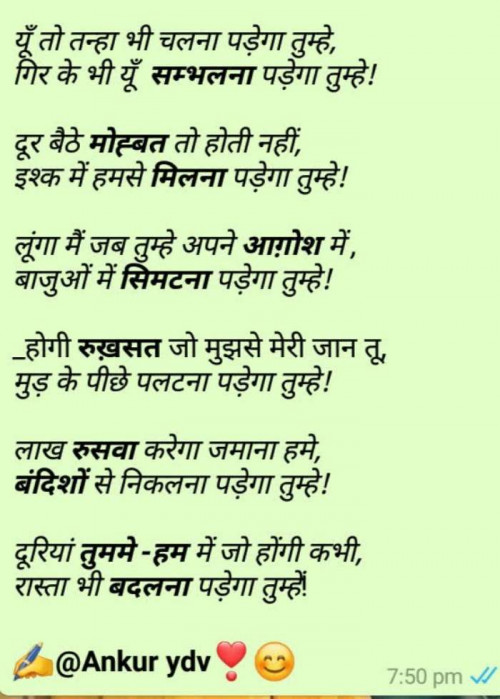 यूँ तो तन्हा भी चलना पड़ेगा तुम्हे,
गिर के भी यूँ सम्भलना पड़ेगा तुम्हे!
दूर बैठे मोह्बत तो होती नहीं,
इश्क में हमसे मिलना पड़ेगा तुम्हे!
लूंगा मैं जब तुम्हे अपने आग़ोश में,
बाजुओं में सिमटना पड़ेगा तुम्हे!
_होगी रुख़सत जो मुझसे मेरी जान तू,
मुड़ के पीछे पलटना पड़ेगा तुम्हे!
लाख रुसवा करेगा जमाना हमे,
बंदिशों से निकलना पड़ेगा तुम्हे!
दूरियां तुममे-हम में जो होंगी कभी,
रास्ता भी बदलना पड़ेगा तुम्हें!
✍️@Ankur ydv❣️😊
7:50 pm